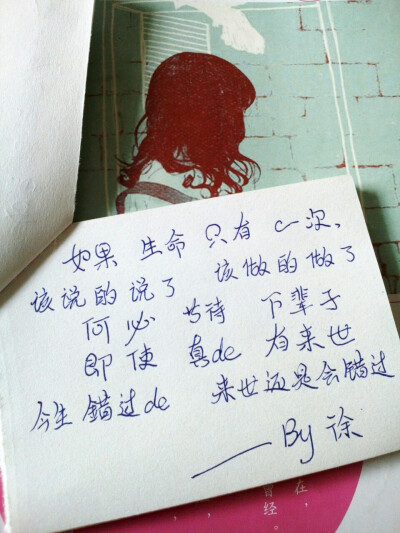 如果 生命 只有 一次,
该说的说了 该做的做了
何必 苦待 下辈子
即使 真de 有来世
今生 错过de 来世还是会错过
——By 徐
在,
曾经。